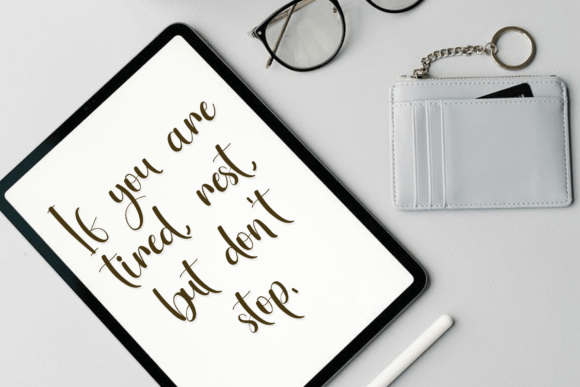 If you are
tired, rest,
but don't
stop.